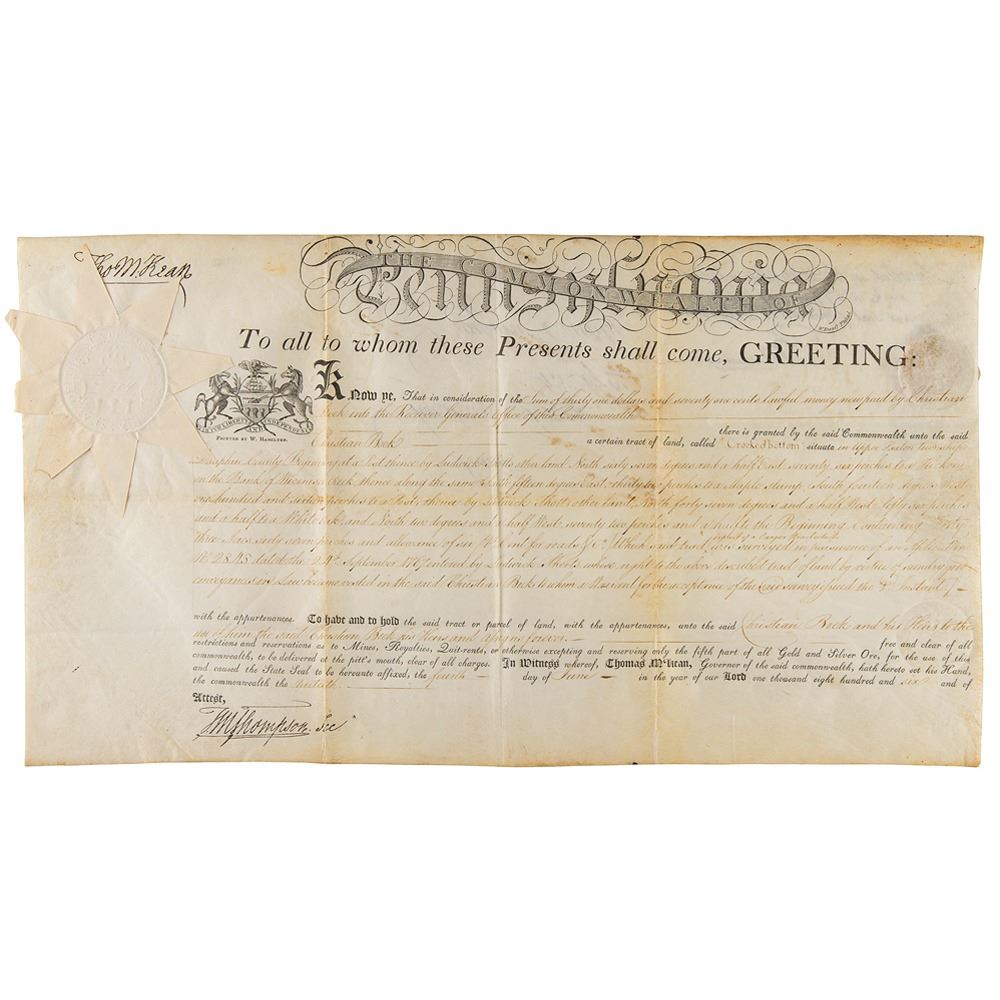 Tho M:Kean
THE COMMONWEALTH OF
Pennsylvania
To all to whom these Presents shall come, GREETING:
PRINTED BY W. HAMILTON.
Know ye, That in consideration of the Sum of thirty one dollars and seventy one cents lawful money now paid by Christian
Beck into the Receiver Generals Office of this Commonwealth there is granted by the said Commonwealth unto the said
Christian Beck a certain tract of land, called "Crooked bottom" situate in Upper Paxton township
Dauphin County Beginning at a Post thence by Ludwick Shotts other land North sixty seven degrees and a half East seventy six perches to a
on the Bank of Wiconisco Creek thence along the same South fifteen degrees East thirty six perches to a Maple stump South fourteen degrees West
one hundred and sixteen perches to a Post thence by Ludwick Shott's other land North forty seven degrees and a half West fifty six perches
and a half to a White oak and North two degrees and a half West seventy two perches and a half to the Beginning Containing Forty
three Acres sixty seven perches and allowance of six P Cent for roads &c Which said tract part of a Larger was surveyed in pursuance of an Application
No 2845 dated the 29th September 1767 entered by Ludwick Shotts whose right to the above described tract of land by virtue of sundry
conveyances in Law became vested in the said Christian Beck to whom a Warrant for the acceptance of the survey issued the instant
with the appurtenances. To have and to hold the said tract or parcel of land, with the appurtenances, unto the said Christian Beck and his Heirs to the
use of him the said Christian Beck his Heirs and Assigns forever. free and clear of all
restrictions and reservations as to Mines, Royalties, Quit-rents, or otherwise excepting and reserving only the fifth part of all Gold and Silver Ore, for the use of this
commonwealth, to be delivered at the pitt's mouth, clear of all charges. In Witness whereof, Thomas M'Kean, Governor of the said commonwealth, hath hereto set his Hand,
and caused the State Seal to be hereunto affixed, the fourth day of June in the year of our Lord one thousand eight hundred and six and of
the commonwealth the thirtieth.
Attest,
TMThompson Sec